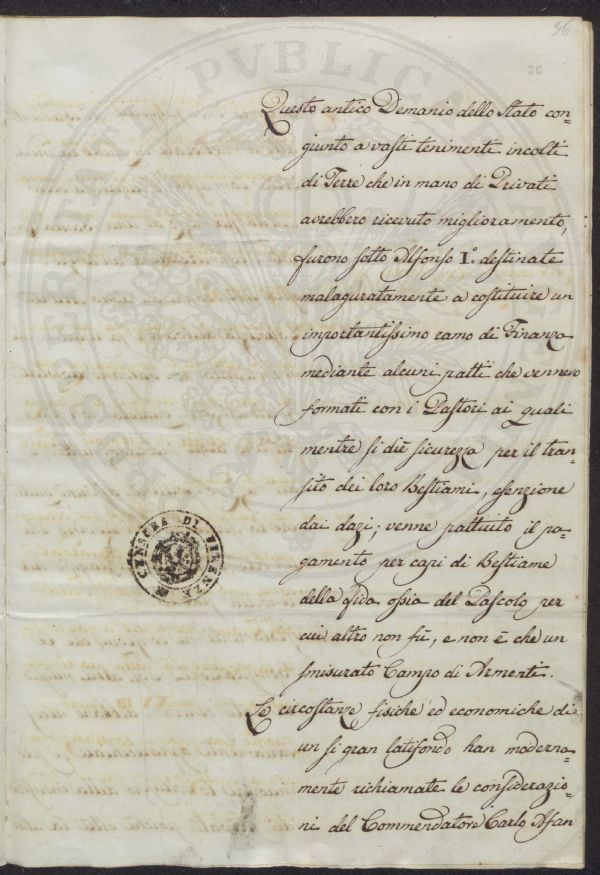 36
36
Questo antico Demanio dello Stato con=
giunto a vasti tenimenti incolti
di Terre che in mano di Privati
avrebbero ricevuto miglioramento,
furono sotto Alfonso I.o destinate
malaguratamente a costituire un
importantissimo ramo di Finanza
mediante alcuni patti che vennero
formati con i Pastori ai quali
mentre si diè sicurezza per il tran=
sito dei loro Bestiami, esenzione
dai dazi; venne pattuito il pa=
gamento per capi di Bestiame
della fida ossia del Pascolo per
cui altro non fù, e non è che un
smisurato Campo di Armenti.
Le circostanze fisiche ed economiche di
un si gran latifondo han moderna=
mente richiamate le considerazio=
ni del Commendatore Carlo Afan
CENSURA DI FIRENZE
PVBLICAE